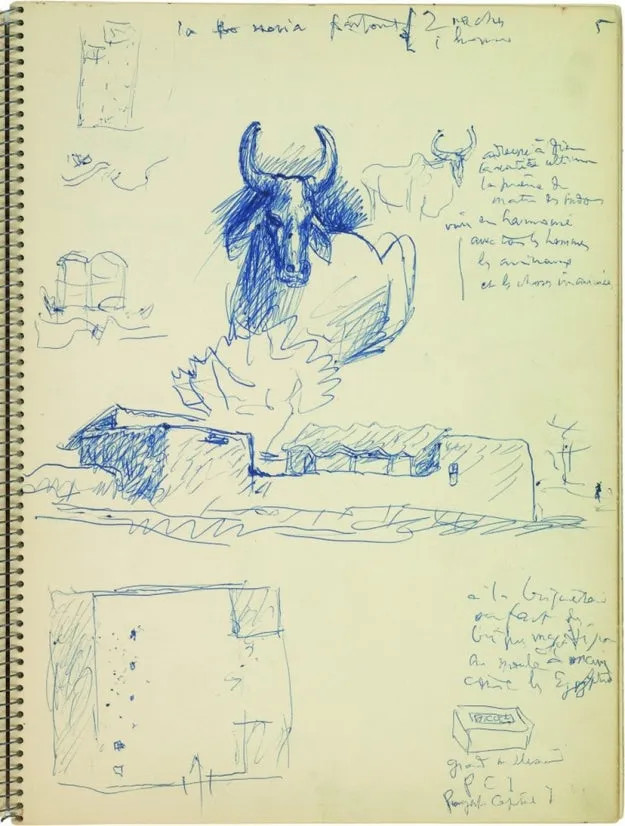 la noria partout { 2 vaches
1 homme
5
adressé à Dieu
la vérité ultime
la prière du
matin des Indous
vivre en harmonie
avec tous les hommes
les animaux
et les choses inanimées
à la briqueterie
on fait des
briques magnifiques
au moule à main
comme les Egyptiens
P C 1
Punjab Capital 1